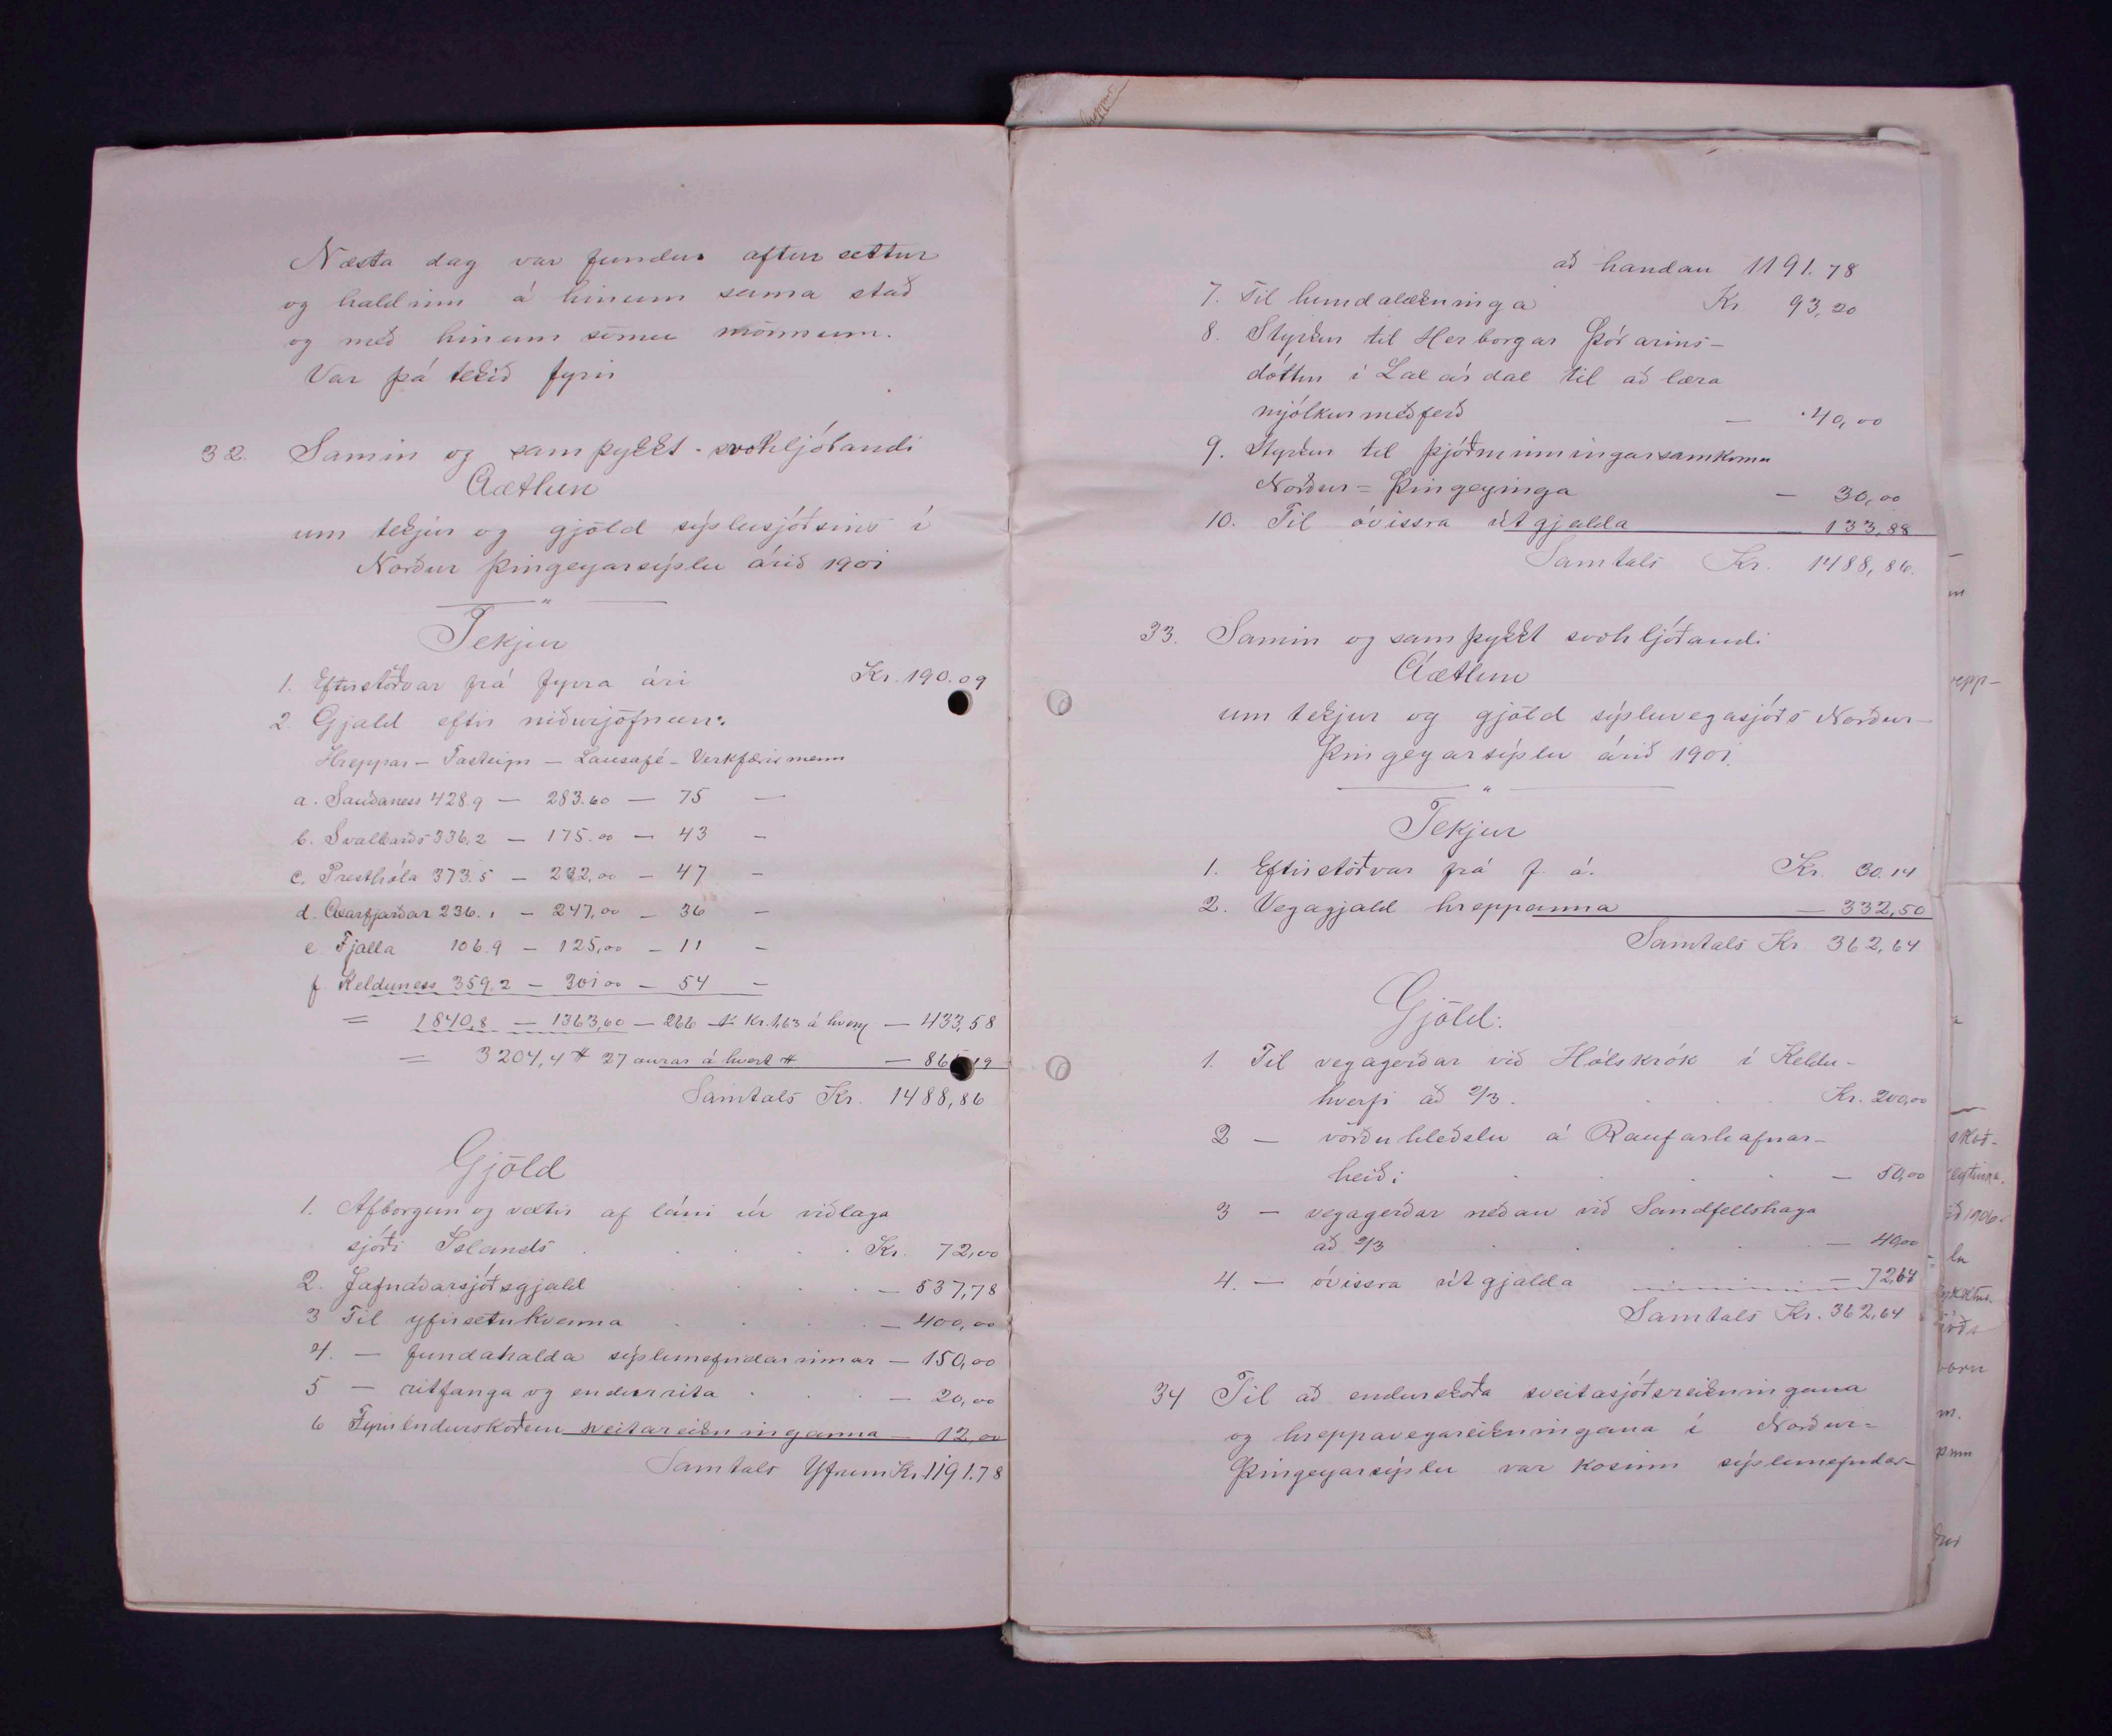 Næsta dag var fundur aftur settur
og haldinn á hinum sama stað
og með hinum sömu mönnum.
Var þá tekið fyrir
32. Samin og samþykkt svohljóðandi
Áætlun
um tekjur og gjöld sýslusjóðsins í
Norður Þingeyarsýslu árið 1901
Tekjur
1. Eftirstöðvar frá fyrra ári Kr. 190.09
2. Gjald eftir niðurjöfnun:
Hreppar – Fasteign – Lausafé – Verkfærismenn
a. Sauðaness 428.9 – 283.60 – 75 –
b. Svalbarðs 336.2 – 175.00 – 43 –
c. Presthóla 373.5 – 232,00 – 47 –
d. Axarfjarðar 236.1 – 247,00 – 36 –
e Fjalla 106.9 – 125,00 – 11 –
f. Kelduness 359.2 – 301 00 – 54 –
= 1840,8 – 1363,60 – 266 Kr. 1,63 á hvern – 433,58
= 3204,4 # 27 aurar á hvert # – 86 19
Samtals Kr. 1488,86
Gjöld
1. Afborgun og vextir af láni úr viðlaga
sjóði Íslands . . . . Kr. 72,00
2. Jafnaðarsjóðsgjald . . . – 537,78
3 Til yfirsetukvenna . . . – 400,00
4. – fundahalda sýslunefndarinnar – 150,00
5 – ritfanga og endurrita . . . – 20,00
6 Fyrir endurskoðun sveitareikninganna – 12,00
Samtals Yfirum Kr. 1191.78
að handan 1191.78
7. Til hundalækninga Kr 93,20
8. Styrkur til Herborgar Þórarins-
dóttur í Laxárdal til að læra
mjólkurmeðferð – 40,00
9. Styrkur til þjóðminningarsamkomu
Norður=Þingeyinga – 30,00
10. Til óvissra útgjalda – 133,88
Samtals Kr. 1488,86.
33. Samin og samþykkt svohljóðandi
Áætlun
um tekjur og gjöld sýsluvegasjóðs Norður-
Þingeyarsýslu árið 1901.
Tekjur
1. Eftirstöðvar frá f. á. Kr. 30.14
2. Vegagjald hreppanna – 332,50
Samtals Kr. 362,64
Gjöld:
1. Til vegagerðar við Hólskrók í Keldu-
hverfi að 2/3 . . . . Kr. 200,00
2 – vörðuhleðslu á Raufarhafnar-
heiði . . . . – 50,00
3 – vegagerðar neðan við Sandfellshaga
að 2/3 . . . . – 40,00
4. – óvissra útgjalda – 72,64
Samtals Kr. 362,64
34 Til að endurskoða sveitasjóðsreikningana
og hreppavegareikningana í Norður=
Þingeyarsýslu var kosinn sýslunefndar-